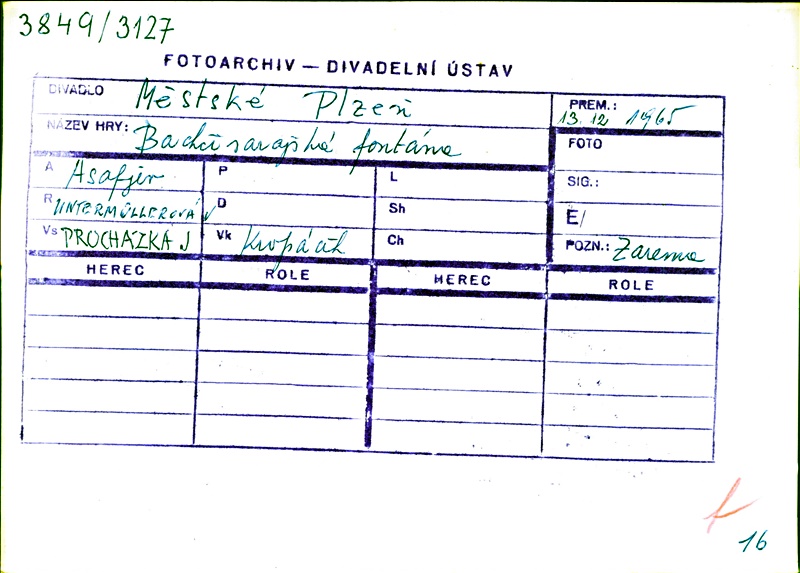 3849/3127
FOTOARCHIV — DIVADELNÍ ÚSTAV
DIVADLO Městské Plzeň
PREM.: 13. 12 1965
NÁZEV HRY: Bachčisarajská fontána
FOTO
A Asafjev
P
L
SIG.:
R UNTERMÜLLEROVÁ V
D
Sh
E/
Vs PROCHÁZKA J
Vk Kropáček
Ch
POZN.: Zarema
HEREC
ROLE
HEREC
ROLE
16